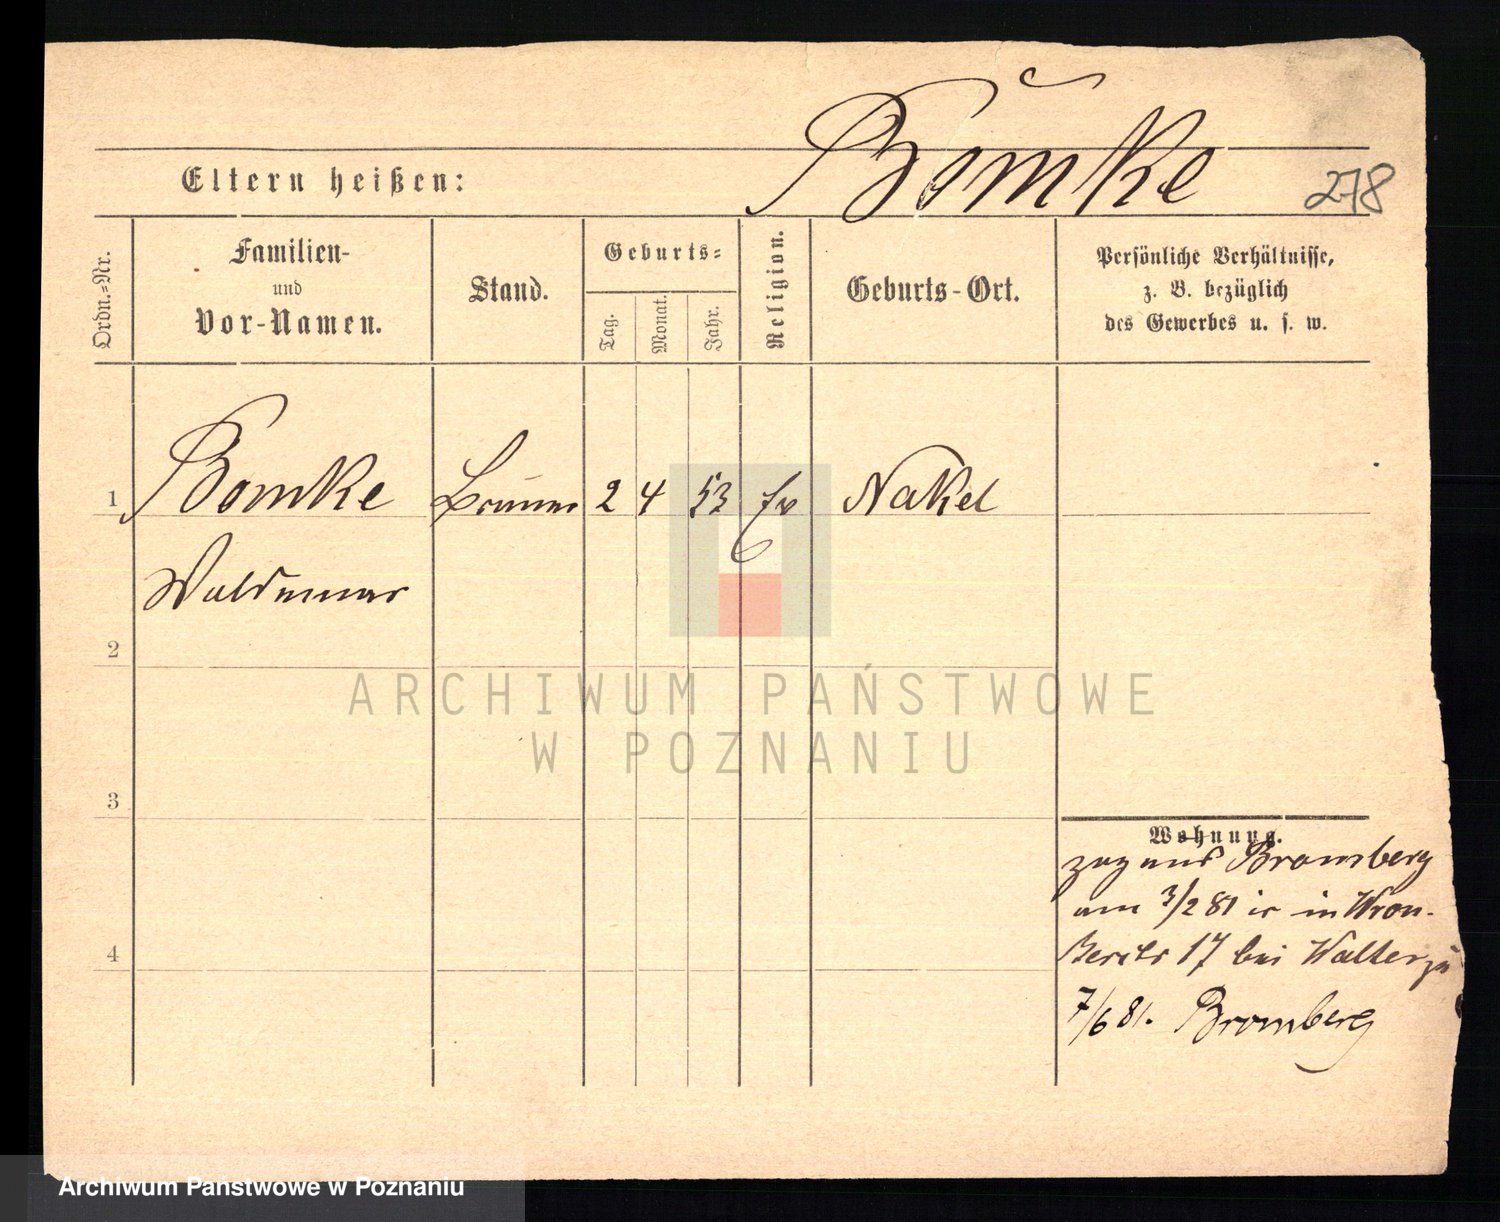 Bömke
Eltern heißen:
278
Ordn.=Nr.
Familien-
und
Vor-Namen.
Stand.
Geburts=
Tag.
Monat.
Jahr.
Religion.
Geburts-Ort.
Persönliche Verhältnisse,
z. B. bezüglich
des Gewerbes u. s. w.
1 Bomke 2 4 53 Ev Nakel
Waldemar
2
ARCHIWUM PAŃSTWOWE
W POZNANIU
3
Wohnung.
zog aus Bromberg
am 3/2 81 in Wron-
17 bei Walter zu
4
7/6 81. Bromberg
Archiwum Państwowe w Poznaniu